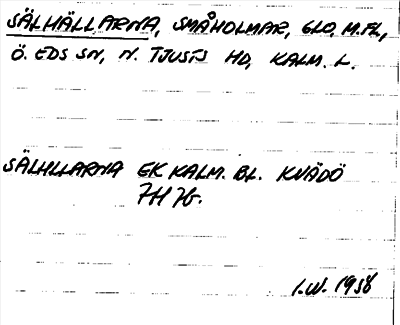 SÄLHÄLLARNA, SMÅHOLMAR, GLO, M.FL,
Ö. EDS SN, N. TJUSTS HD, KALM. L.
SÄLHLLARNA EK KALM. BL. KVÄDÖ
7H 7G.
I.W. 1958